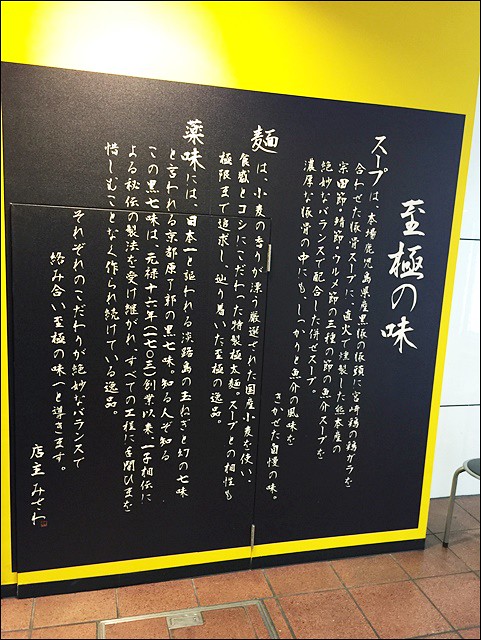 至極の味
スープは、本場鹿児島県産黒豚の豚頭に宮崎鶏の鶏ガラを
合わせた豚骨スープに、直火で燻製した熊本産の
宗田節・鯖節・ウルメ節の三種の節の魚介スープを
絶妙なバランスで配合した併せスープ。
濃厚な豚骨の中にも、しっかりと魚介の風味を
きかせた自慢の味。
麺は、小麦の香りが漂う厳選された国産小麦を使い、
食感とコシにこだわった特製極太麺。スープとの相性も
極限まで追求し辿り着いた至極の逸品。
薬味には、日本一と謳われる淡路島の玉ねぎと幻の七味
と言われる京都原了郭の黒七味。知る人ぞ知る
この黒七味は、元禄十六年(一七〇三)創業以来一子相伝に
よる秘伝の製法を受け継がれ、すべての工程に手間ひまを
惜しむことなく作られ続けている逸品。
それぞれのこだわりが絶妙なバランスで
絡み合い至極の味へと導きます。
店主 みさわ